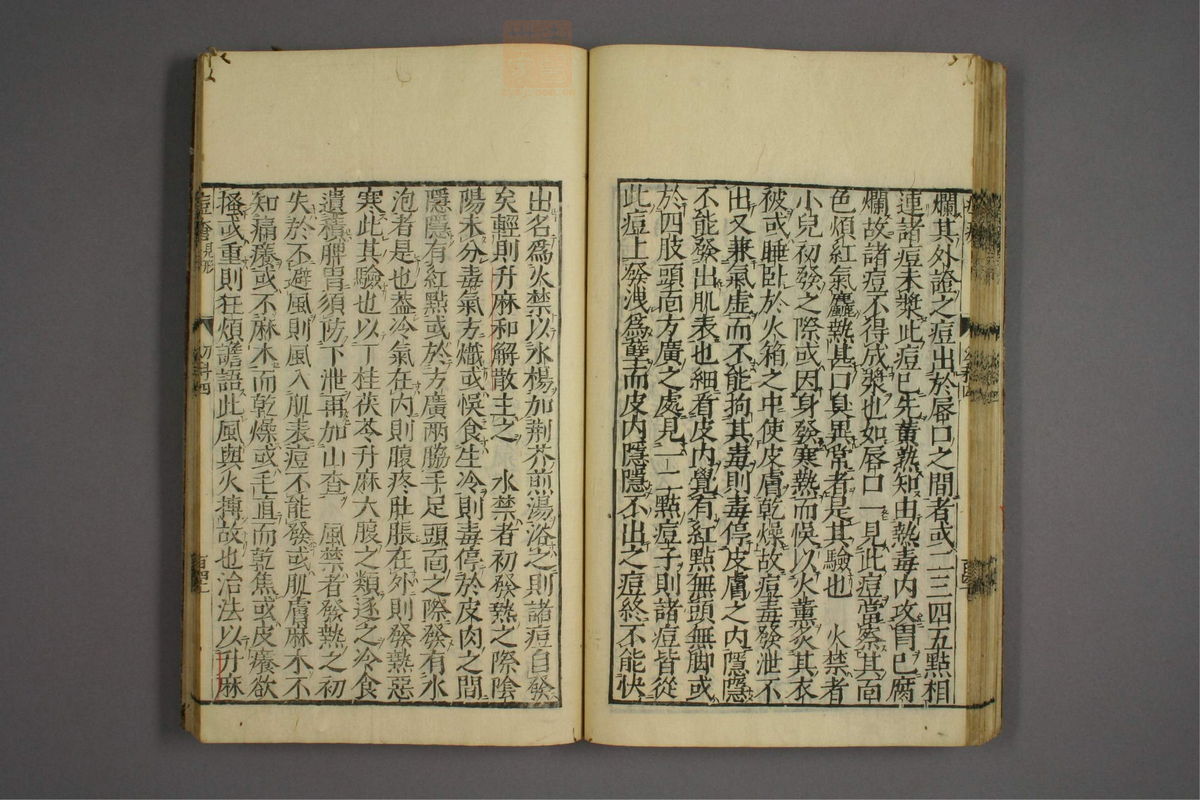 爛其外證之痘出於唇口之間者或二三四五點相
連諸痘未漿此痘已先黃熟知由熱毒內攻胃已腐
爛故諸痘不得成漿也如唇口一見此痘當察其面
色煩紅氣麤熱甚口臭異常者是其驗也　火禁者
小兒初發之際或因身發寒熱而悞以火薰炙其衣
被或睡臥於火箱之中使皮膚乾燥故痘毒發泄不
出又兼氣虛而不能拘其毒則毒停皮膚之內隱隱
不能發出肌表也細看皮內覺有紅點無頭無脚或
於四肢頭面方廣之處見一二點痘子則諸痘皆從
此痘上發洩爲孽而皮內隱隱不出之痘終不能快
出名爲火禁以水楊加荆芥煎湯浴之則諸痘自發
矣輕則升麻和解散主之　水禁者初發熱之際陰
陽未分毒氣方熾或悞食生冷則毒停於皮肉之間
隱隱有紅點或於方廣兩脇手足頭面之際發有水
泡者是也葢冷氣在內則腹疼肚脹在外則發熱惡
寒此其驗也以丁桂茯苓升麻大腹之類逐之冷食
遺積脾胃須防下泄再加山查　風禁者發熱之初
失於不避風則風入肌表痘不能發或肌膚麻木不
知痛癢或不麻木而乾燥或毛直而乾焦或皮癢欲
搔或重則狂煩譫語此風與火摶故也治法以升麻
痘瘡見形
幼科四